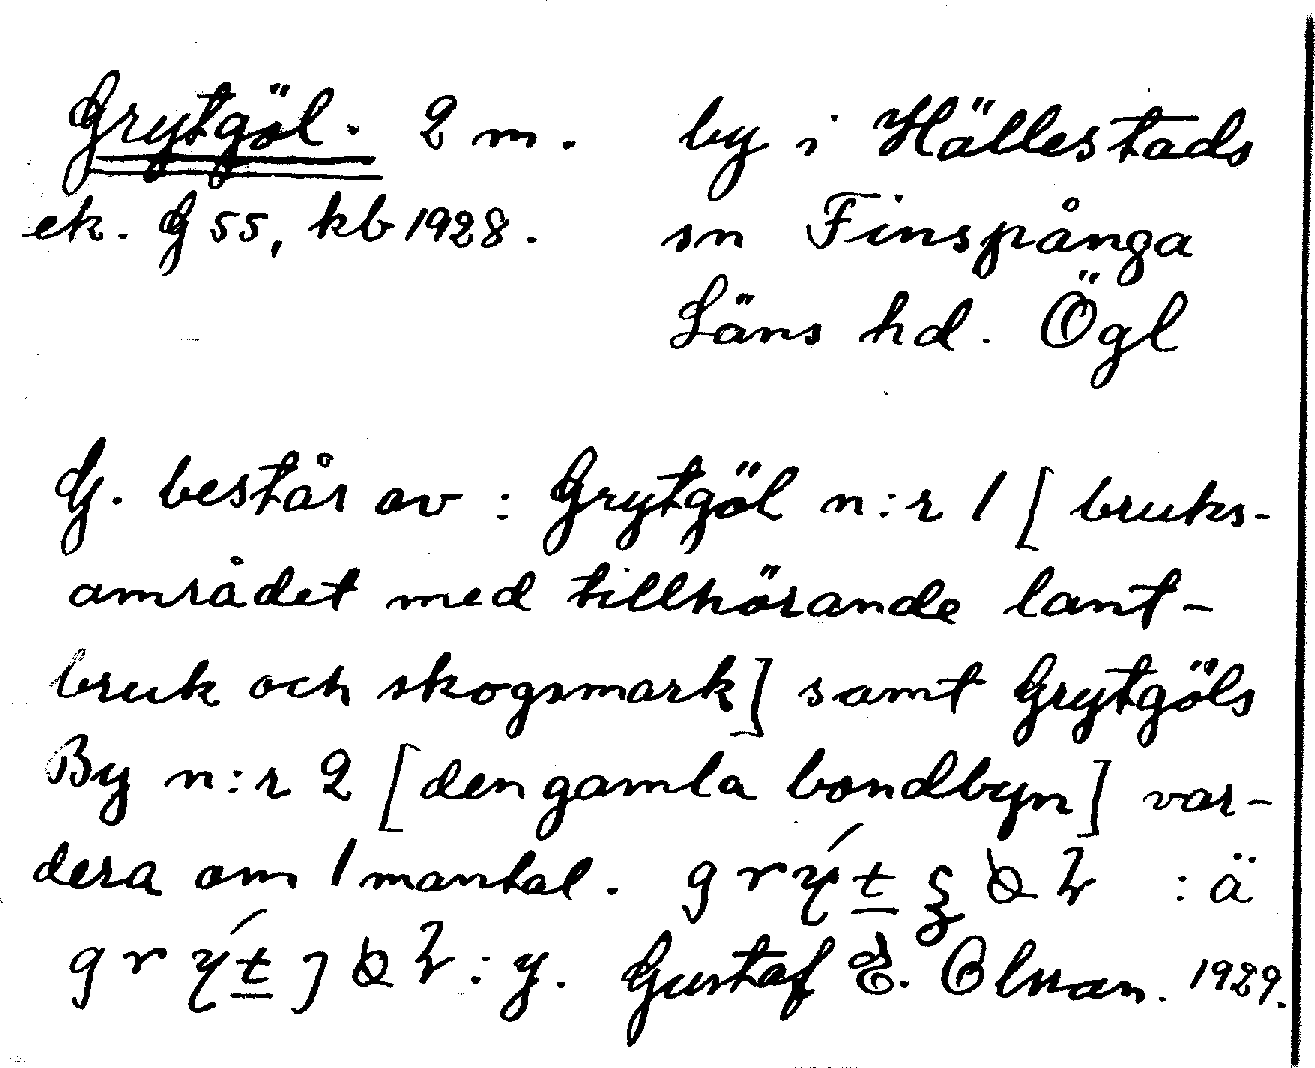 Grytgöl. 2 m. by i Hällestads
ek. G 55, kb 1928. sn Finspånga
Läns hd. Ögl
G. består av: Grytgöl n:r 1 [bruks-
området med tillhörande lant-
bruk och skogsmark] samt Grytgöls
By n:r 2 [den gamla bondbyn] var-
dera om 1 mantal. :ä
:y. Gustaf E. Olman. 1929.